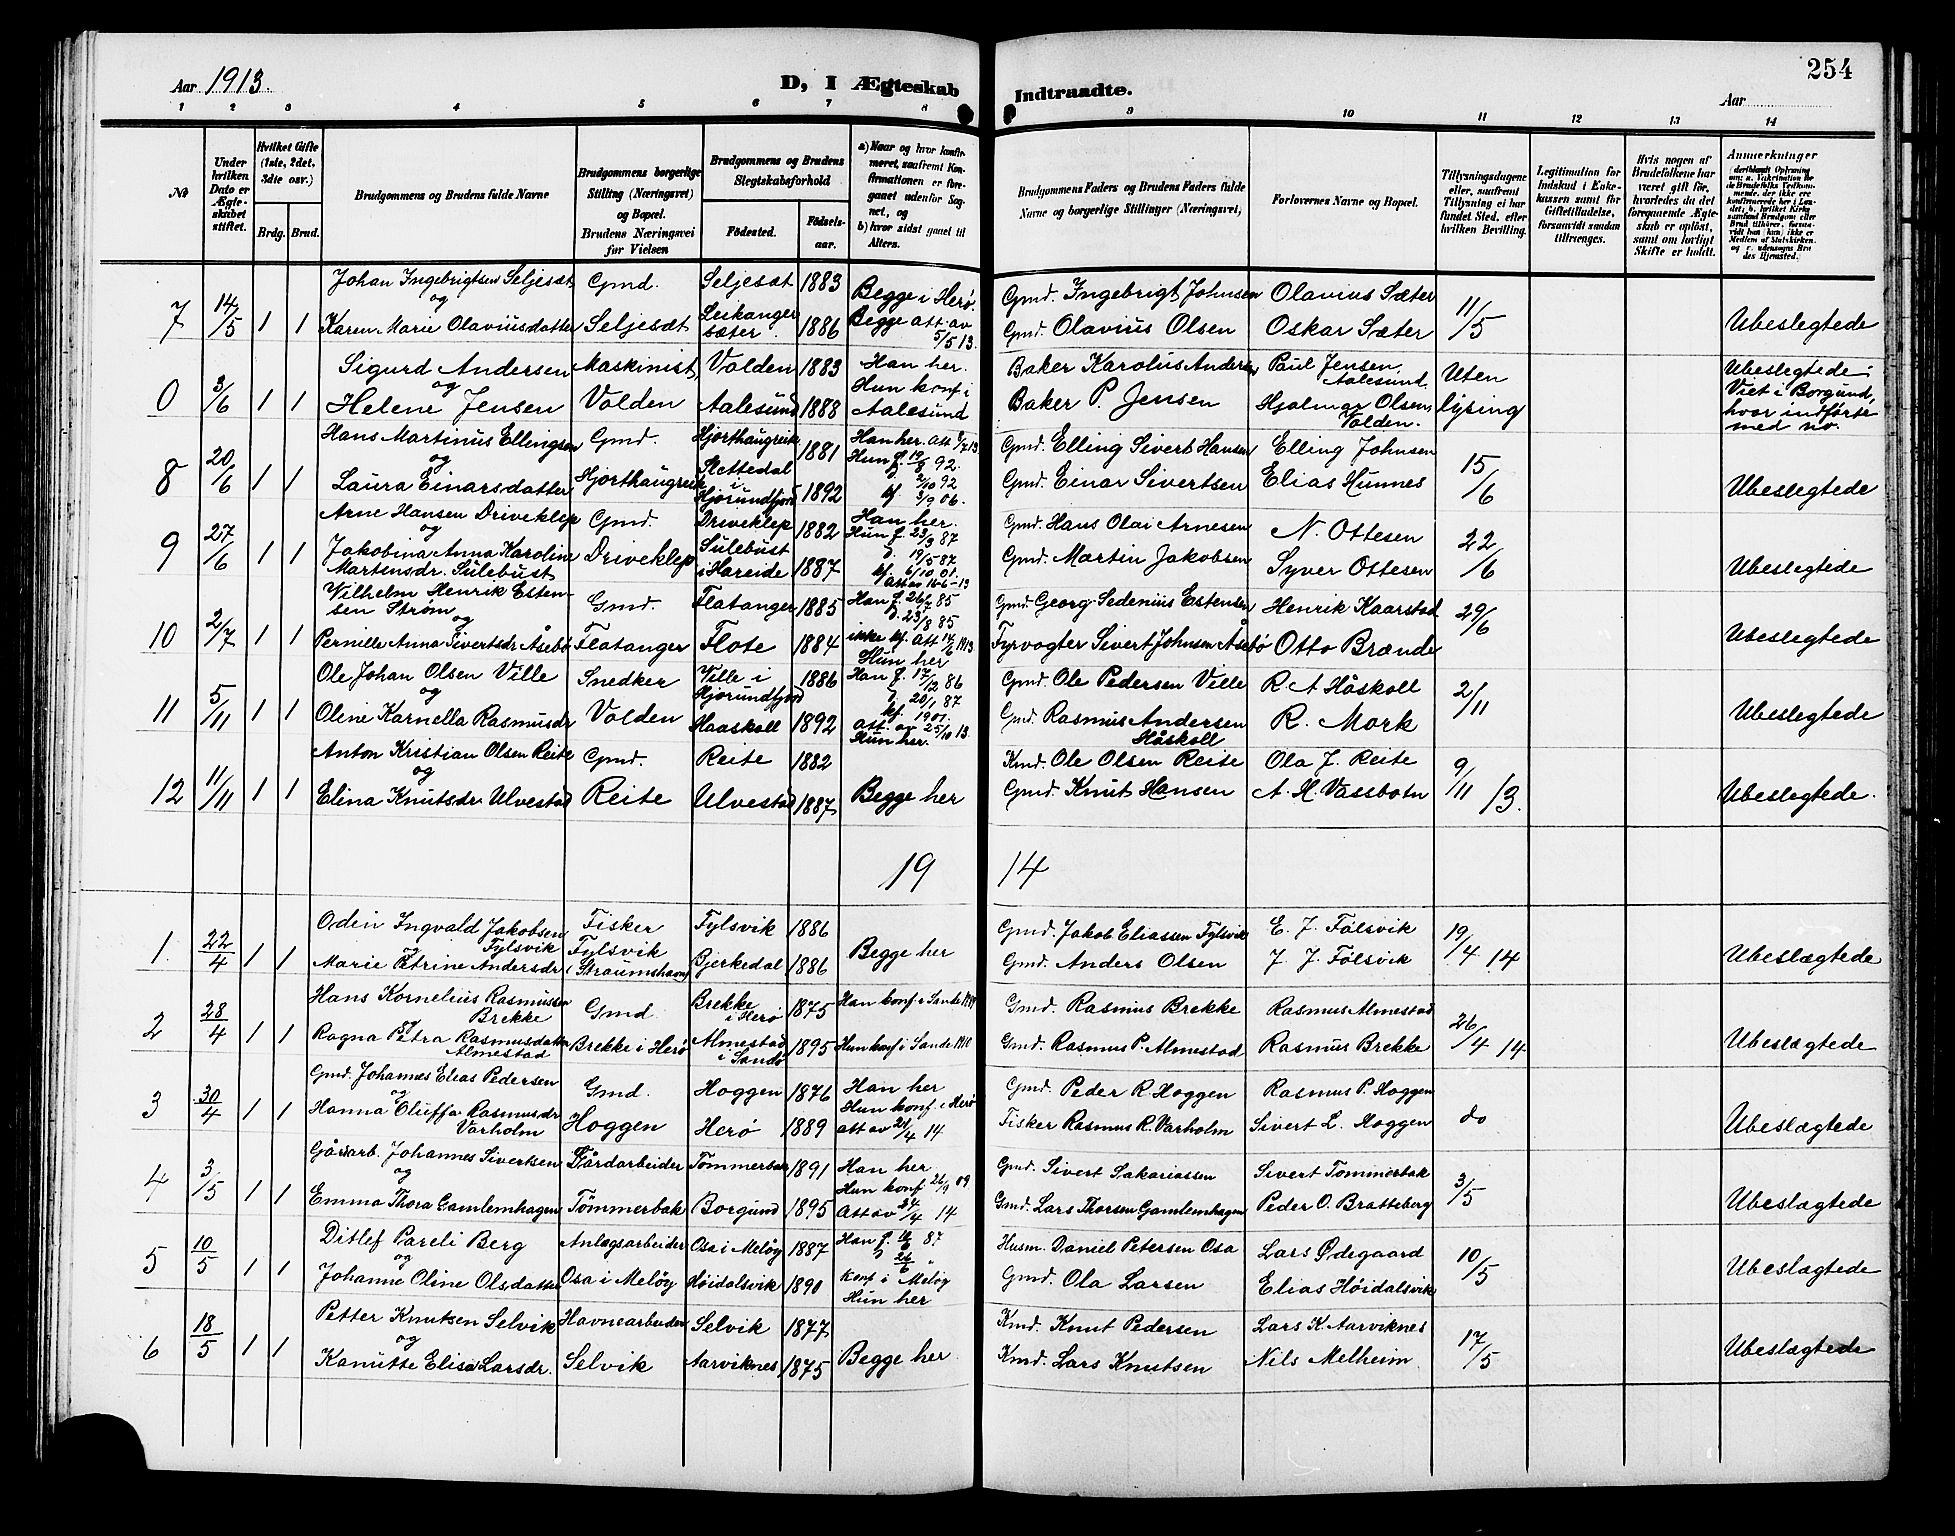 254
Aar 1913.
D, I Ægteskab Indtraadte.
Aar
1 2 3 4 5 6 7 8 9 10 11 12 13 14
No
Under hvilken Dato er Ægteskabet stiftet.
Hvilket Gifte (1ste, 2det, 3die osv.)
Brdg. Brud.
Brudgommens og Brudens fulde Navne
Brudgommens borgerlige Stilling (Næringsvei) og Bopæl. Brudens Næringsvei før Vielsen
Brudgommens og Brudens Slegtskabsforhold
Fødested. Fødselsaar.
a) Naar og hvor konfirmeret, saafremt Konfirmationen er foregaaet udenfor Sognet, og
b) hvor sidst gaaet til Alters.
Brudgommens Faders og Brudens Faders fulde Navne og borgerlige Stillinger (Næringsvei)
Forlovernes Navne og Bopæl.
Tillysningsdagene eller, saafremt Tillysning ei har fundet Sted, efter hvilken Bevilling.
Legitimation for Indskud i Enkekassen samt for Giftetilladelse, forsaavidt saadan tiltrænges.
Hvis nogen af Brudefolkene har været gift før, hvorledes da det foregaaende Ægteskab er opløst, samt om lovligt Skifte er holdt.
Anmerkninger
7 14/5 1 1 Johan Ingebrigtsen Seljesæt Gmd. Seljesæt 1883 Begge i Herø. Gmd. Ingebrigt Johnsen Olavius Sæter 11/5
og
Karen Marie Olaviusdatter Seljesæt Leikanger sæter 1886 Begge att. av 5/5 13. Gmd. Olavius Olsen Oskar Sæter Ubeslegtede
0 3/6 1 1 Sigurd Andersen Maskinist, Volden 1883 Han her. Baker Karolus Andersen Paul Jensen, Aalesund. Uten lysing
og
Helene Jensen Volden Aalesund 1888 Hun konf i Aalesund Baker P. Jensen Hjalmar Olsen Volden. Ubeslegtede; Viet i Borgund, hvor indførte med no.
8 20/6 1 1 Hans Martinus Ellingsen Gmd. Hjorthaugreik 1881 Han her. Gmd. Elling Sivert Hansen Elling Johnsen 15/6
og
Laura Einarsdatter Hjorthaugreik Rettedal i Hjørundfjord 1892 Hun f. 19/8 92. d. 2/10 92 kf. 3/9 06. Gmd. Einar Sivertsen Elias Hunnes Ubeslegtede
9 27/6 1 1 Arne Hansen Driveklep Gmd. Driveklep 1882 Han her. Gmd. Hans Olai Arnesen N. Ottesen 22/6
og
Jakobina Anna Karoline Martensdr. Sulebust Driveklep Sulebust i Hareide 1887 Hun f. 23/3 87 d. 19/5 87 kf. 6/10 01. Att av 16-6-13 Gmd. Martin Jakobsen Syver Ottesen Ubeslegtede
10 2/7 1 1 Vilhelm Henrik Estensen Strøm Gmd. Flatanger 1885 Han f. 26/7 85 d. 23/8 85 Gmd. Georg Sedenius Estensen Henrik Kaarstad 29/6
og
Pernille Anna Sivertsdr Åsebø Flatanger Flote 1884 ikke kf. Att 14/6 1913 Hun her Fyrvogter Sivert Johnsen Åsebø Otto Brænde Ubeslegtede
11 5/11 1 1 Ole Johan Olsen Ville Snedker Ville i Hjørundfjord 1886 Han f. 17/12 86 d. 20/1 87 kf. 1901. Gmd. Ole Pedersen Ville R. A Håskoll 2/11
og
Oline Karnella Rasmusdr Volden Haaskoll 1892 att. av 25/10 13. Hun her. Gmd. Rasmus Andersen Håskoll R. Mork Ubeslegtede
12 11/11 1 1 Anton Kristian Olsen Reite Gmd. Reite 1882 Kmd. Ole Olsen Reite Ola J. Reite 9/11 13.
og
Elina Knutsdr Ulvestad Reite Ulvestad 1887 Begge her Gmd. Knut Hansen A. M. Vassbotn Ubeslegtede.
19 14
1. 22/4 1 1 Odin Ingvald Jakobsen Fylsvik Fisker Fylsvik 1886 Begge her Gmd. Jakob Eliassen Fylsvik E. J. Følsvik 19/4 14
Marie Petrine Andersdr Fylsvik i Straumshavn Bjerkedal 1886 Gmd. Anders Olsen J. J. Følsvik Ubeslægtede
2 28/4 1 1 Hans Kornelius Rasmussen Brekke Gmd. Brekke i Herø 1875 Han konf i Sande Gmd. Rasmus Brekke Rasmus Almestad 26/4 14
og
Ragna Petra Rasmusdatter Almestad Brekke i Herø Almestad i Sande 1895 Hun konf i Sande 1910 Gmd. Rasmus P. Almestad Rasmus Brekke Ubeslægtede
3 30/4 1 1 Gmd. Johannes Elias Pedersen Gmd. Hoggen 1876 Han her Gmd. Peder R. Hoggen Rasmus P. Hoggen do
og
Hanna Oluffa Rasmusdr Varholm Hoggen Herø 1889 Hun konf. i Herø att av 21/4 14 Fisker Rasmus R. Varholm Sivert L. Hoggen Ubeslægtede
4 3/5 1 1 Gårdarb. Johannes Sivertsen Gårdarbeider Tømmerbak 1891 Han her Gmd. Sivert Sakariassen Sivert Tømmerbak 3/5
og
Emma Thora Gamlemhagen Tømmerbak Borgund 1895 Hun konf. 26/9 09. Att av 24/4 14 Gmd. Lars Thorsen Gamlemhagen Peder O. Bratteberg Ubeslægtede
5 10/5 1 1 Ditlef Pareli Berg Anlægsarbeider Osa i Meløy 1887 Han f. 87 Husm. Daniel Petersen Osa Lars Ødegaard 10/5
og
Johanne Oline Olsdatter Osa i Meløy Høidalsvik 1890 konf i Meløy Hun her Gmd. Ola Larsen Elias Høidalsvik Ubeslægtede
6 18/5 1 1 Petter Knutsen Selvik Havnearbeider Selvik 1877 Kmd. Knut Pedersen Lars K. Aarviknes 17/5
og
Kanutte Elise Larsdr. Selvik Aarviknes 1875 Begge her. Kmd. Lars Knutsen Nils Melheim Ubeslægtede